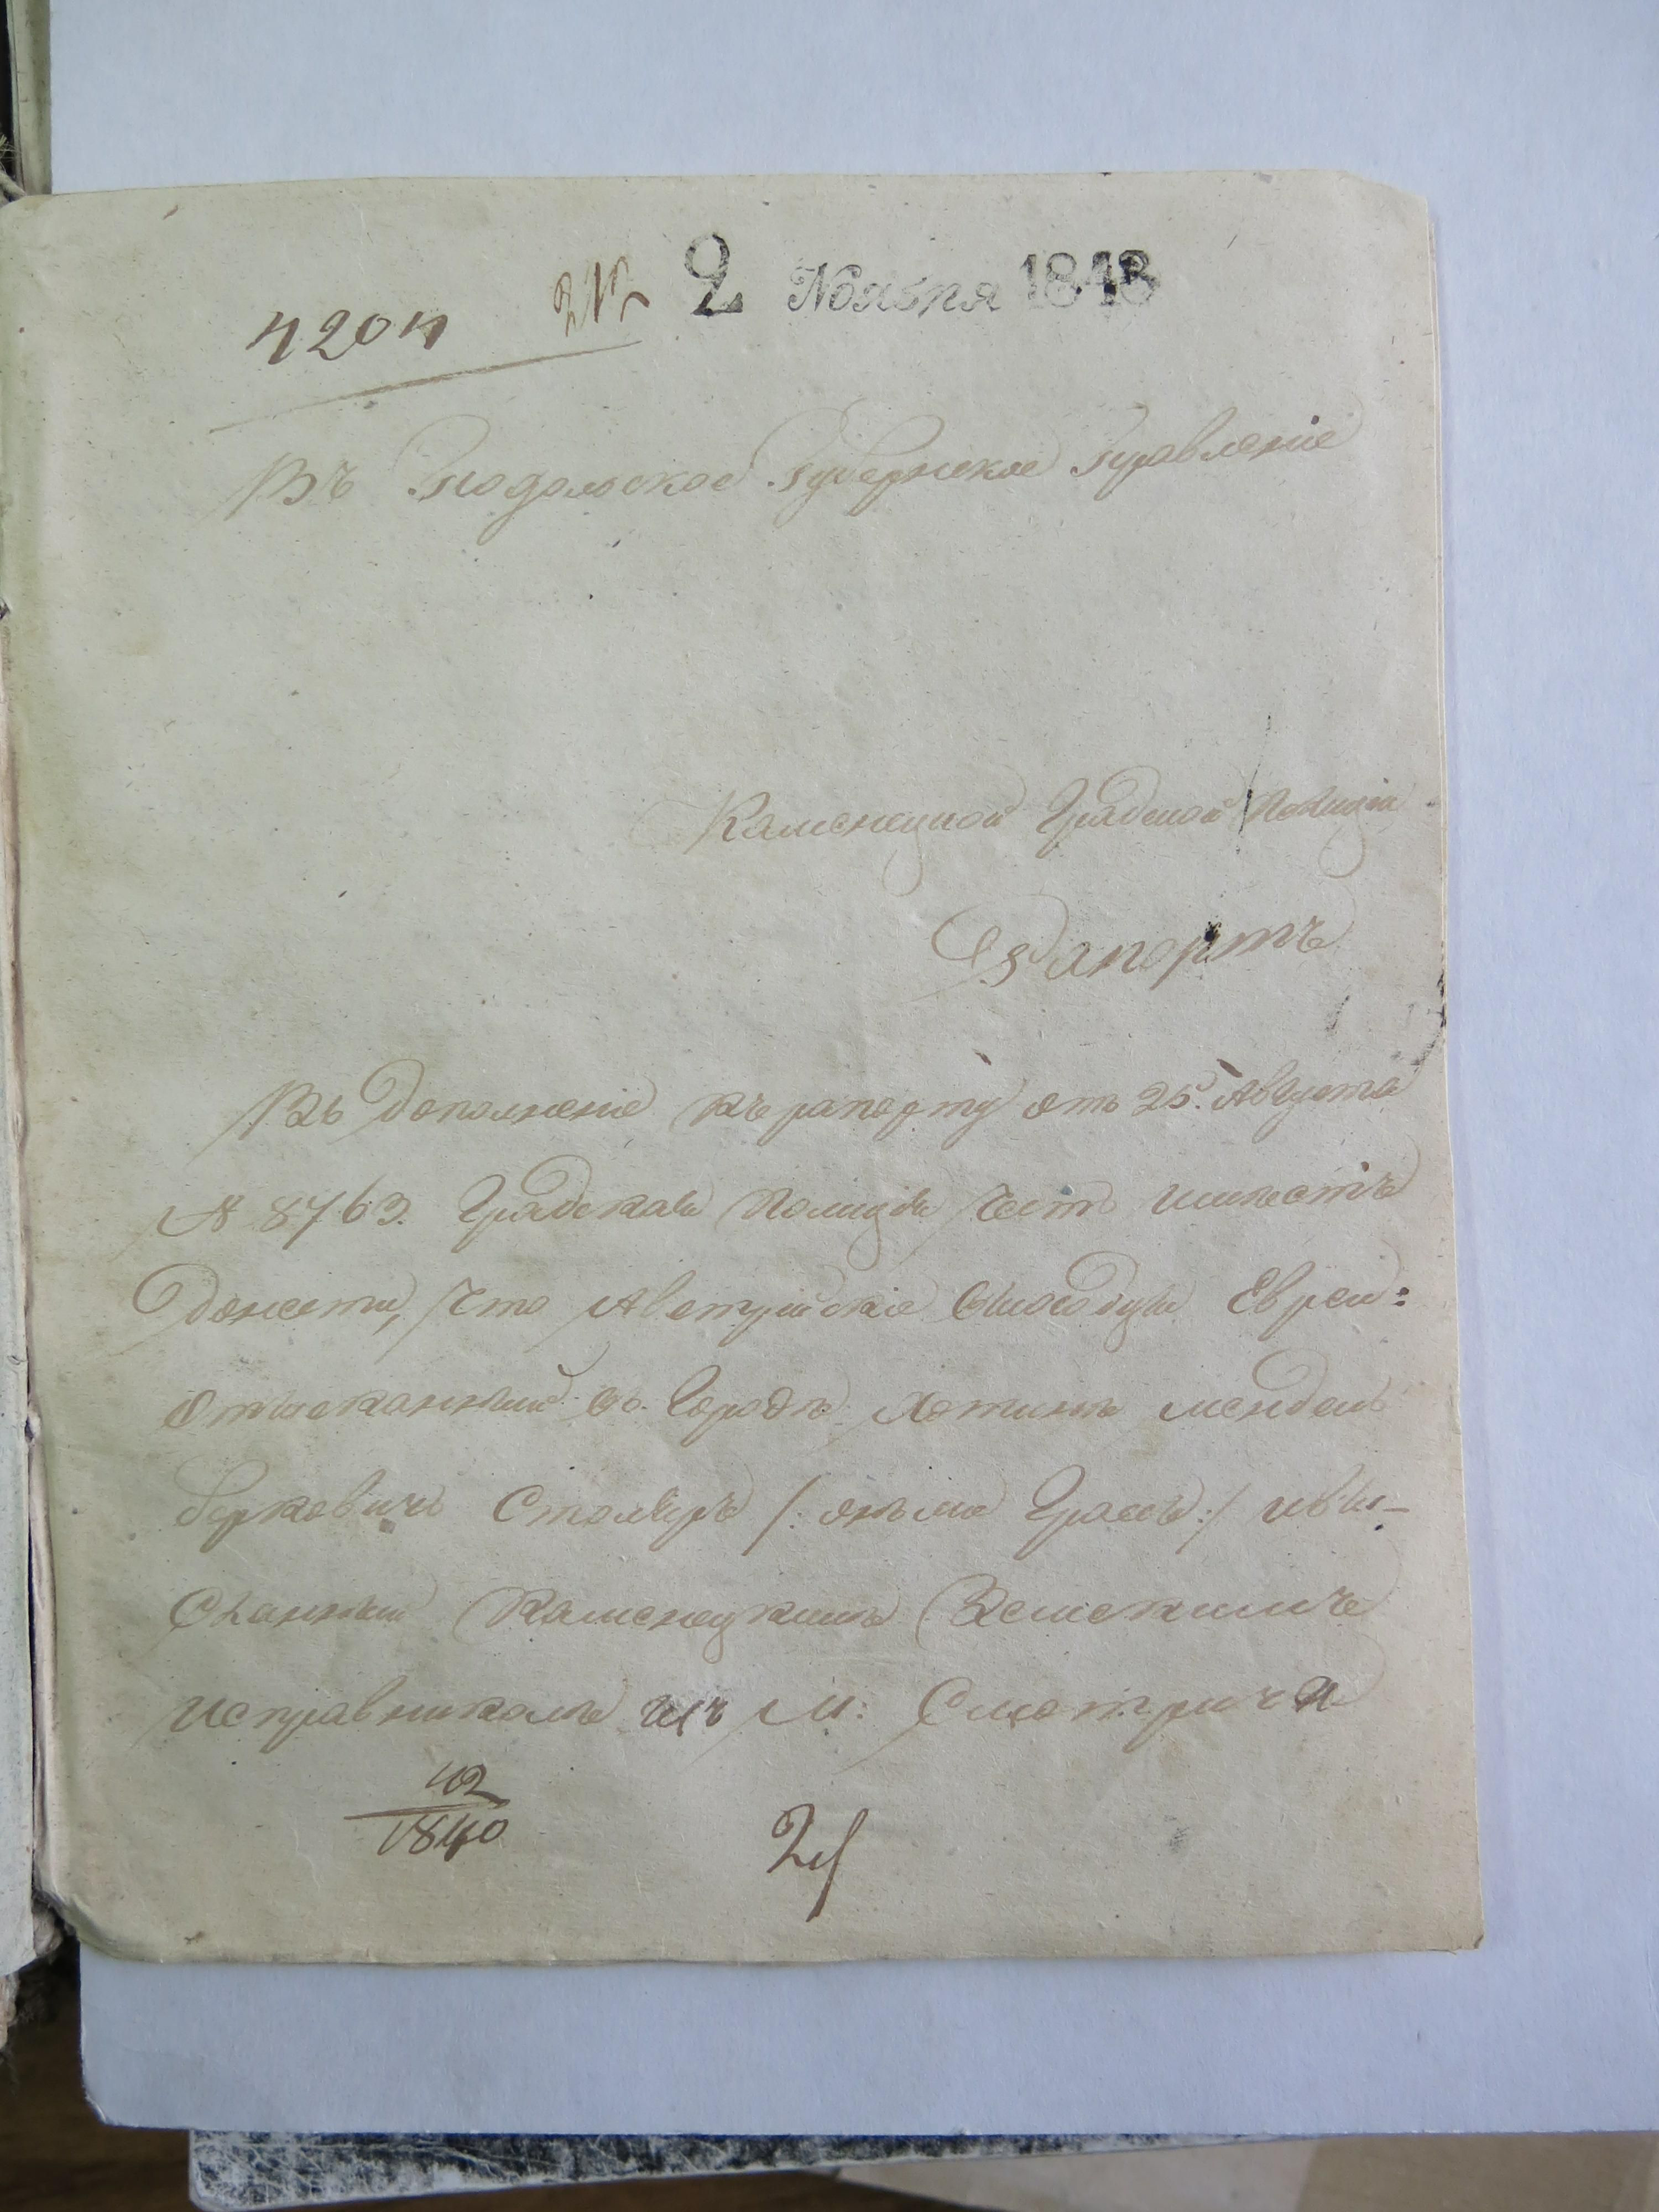 4204
2 Ноября 1848
Въ Подольское Губернское Правленіе
Каменецкой Градской Полиціи
Рапортъ
Въ дополненіе къ рапорту отъ 25. Августа
№ 8763. Градская Полиція честь имѣетъ
донести, что Австрійскіе Еврей:
отысканный въ Городѣ Хотинѣ Мендель
Берковичъ Столяръ /: онъ же :/ и вы-
сланный Каменецкимъ Земскимъ
Исправникомъ изъ М: Смотрича
42
1840